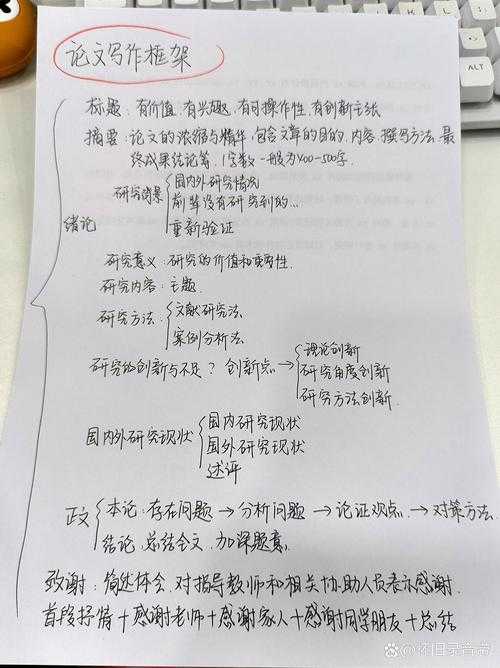 论文写作框架
标题：有价值，有兴趣，有可操作性，有创新主张
摘要：论文的浓缩与精华，包含文章的目的，内容，撰写方法，最
终成果结论等，字数一般为400-500字．
研究背景
国内外研究情况
前辈没有研究到的…
重新验证
绪论
研究意义：研究的价值和重要性．
研究内容：主题．
研究方法：
文献研究法
案例分析法
研究的创新与不足？创新点→
理论创新
研究角度创新
研究方法创新．
国内外研究现状
国内研究现状
国外研究现状
述评
正文
本论：存在问题→分析问题→论证观点→对策方法
结论：总结全文，加深题意
致谢：简述体会，对指导教师和相关协助人员表示感谢．
首段抒情+感谢老师+感谢家人+感谢同学朋友+总结
ALT
@怀旧录音带